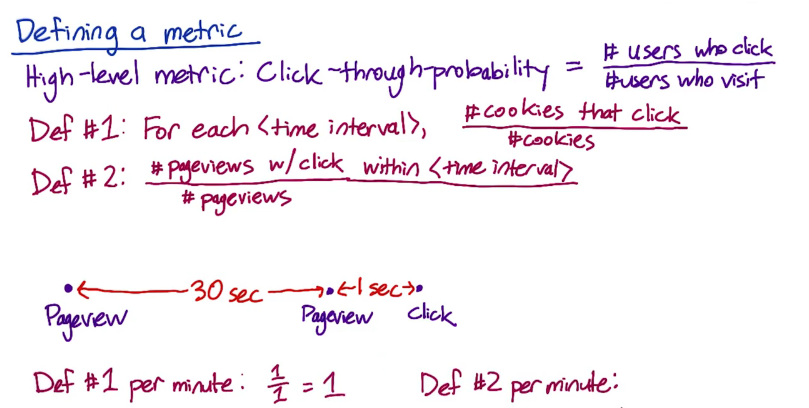 Defining a metric
High-level metric: Click-through-probability = # users who click / # users who visit
Def #1: For each <time interval>, # cookies that click / # cookies
Def #2: # pageviews w/click within <time interval> / # pageviews
30 sec 1 sec
Pageview Pageview Click
Def #1 per minute: 1/1 = 1 Def #2 per minute: